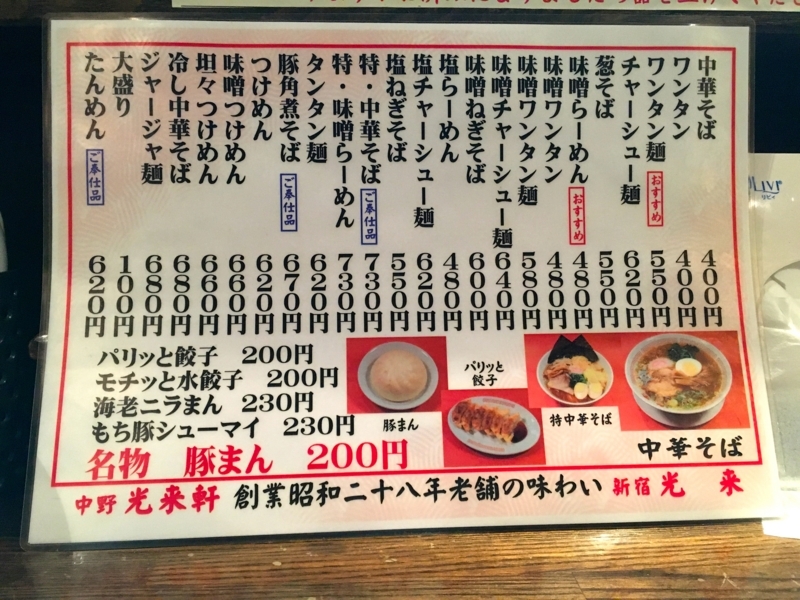 中華そば 400円
ワンタン 400円
ワンタン麺 おすすめ 550円
チャーシュー麺 620円
葱そば 550円
味噌らーめん おすすめ 480円
味噌ワンタン 480円
味噌ワンタン麺 580円
味噌チャーシュー麺 640円
味噌ねぎそば 600円
塩らーめん 480円
塩チャーシュー麺 620円
塩ねぎそば 550円
特・中華そば ご奉仕品 730円
特・味噌らーめん 730円
タンタン麺 620円
豚角煮そば ご奉仕品 670円
つけめん 620円
味噌つけめん 660円
坦々つけめん 660円
冷し中華そば 680円
ジャージャ麺 680円
大盛り 100円
たんめん ご奉仕品 620円
パリッと餃子 200円
モチッと水餃子 200円
海老ニラまん 230円
もち豚シューマイ 230円
名物 豚まん 200円
豚まん
パリッと
餃子
特中華そば
中華そば
中野 光来軒 創業昭和二十八年老舗の味わい 新宿 光来